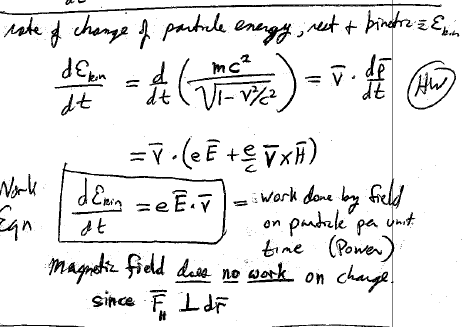 rate of change of particle energy, rest + kinetic ≡ ℰ_kin
dℰ_kin/dt = d/dt ( mc² / √(1 - v²/c²) ) = v̄ · dp̄/dt (HW)
= v̄ · (e Ē + e/c v̄ × H̄)
Work Eqn dℰ_kin/dt = e Ē · v̄ = work done by field
on particle per unit
time (Power)
Magnetic field does no work on charge
since F̄_H ⊥ dr̄